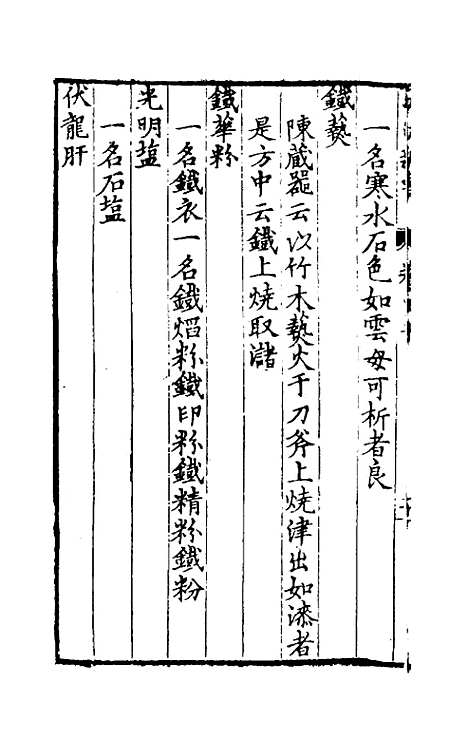 一名寒水石色如雲母可析者良
鐵爇
陳藏器云以竹木爇火于刀斧上燒津出如漆者
是方中云鐵上燒取瀦
鐵華粉
一名鐵衣一名鐵熖粉鐵印粉鐵精粉鐵粉
光明塩
一名石塩
伏龍肝